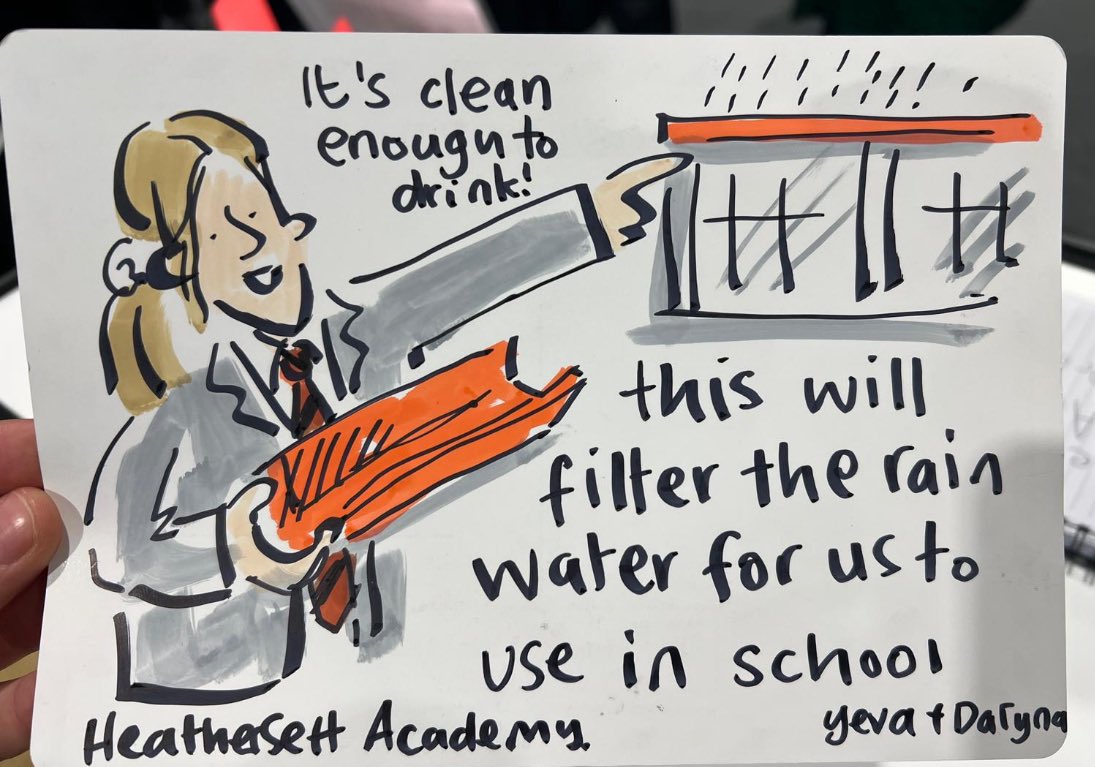 It's clean
enough to
drink!
this will
filter the rain
water for us to
use in school
Heathersett Academy.
yeva + Daryna